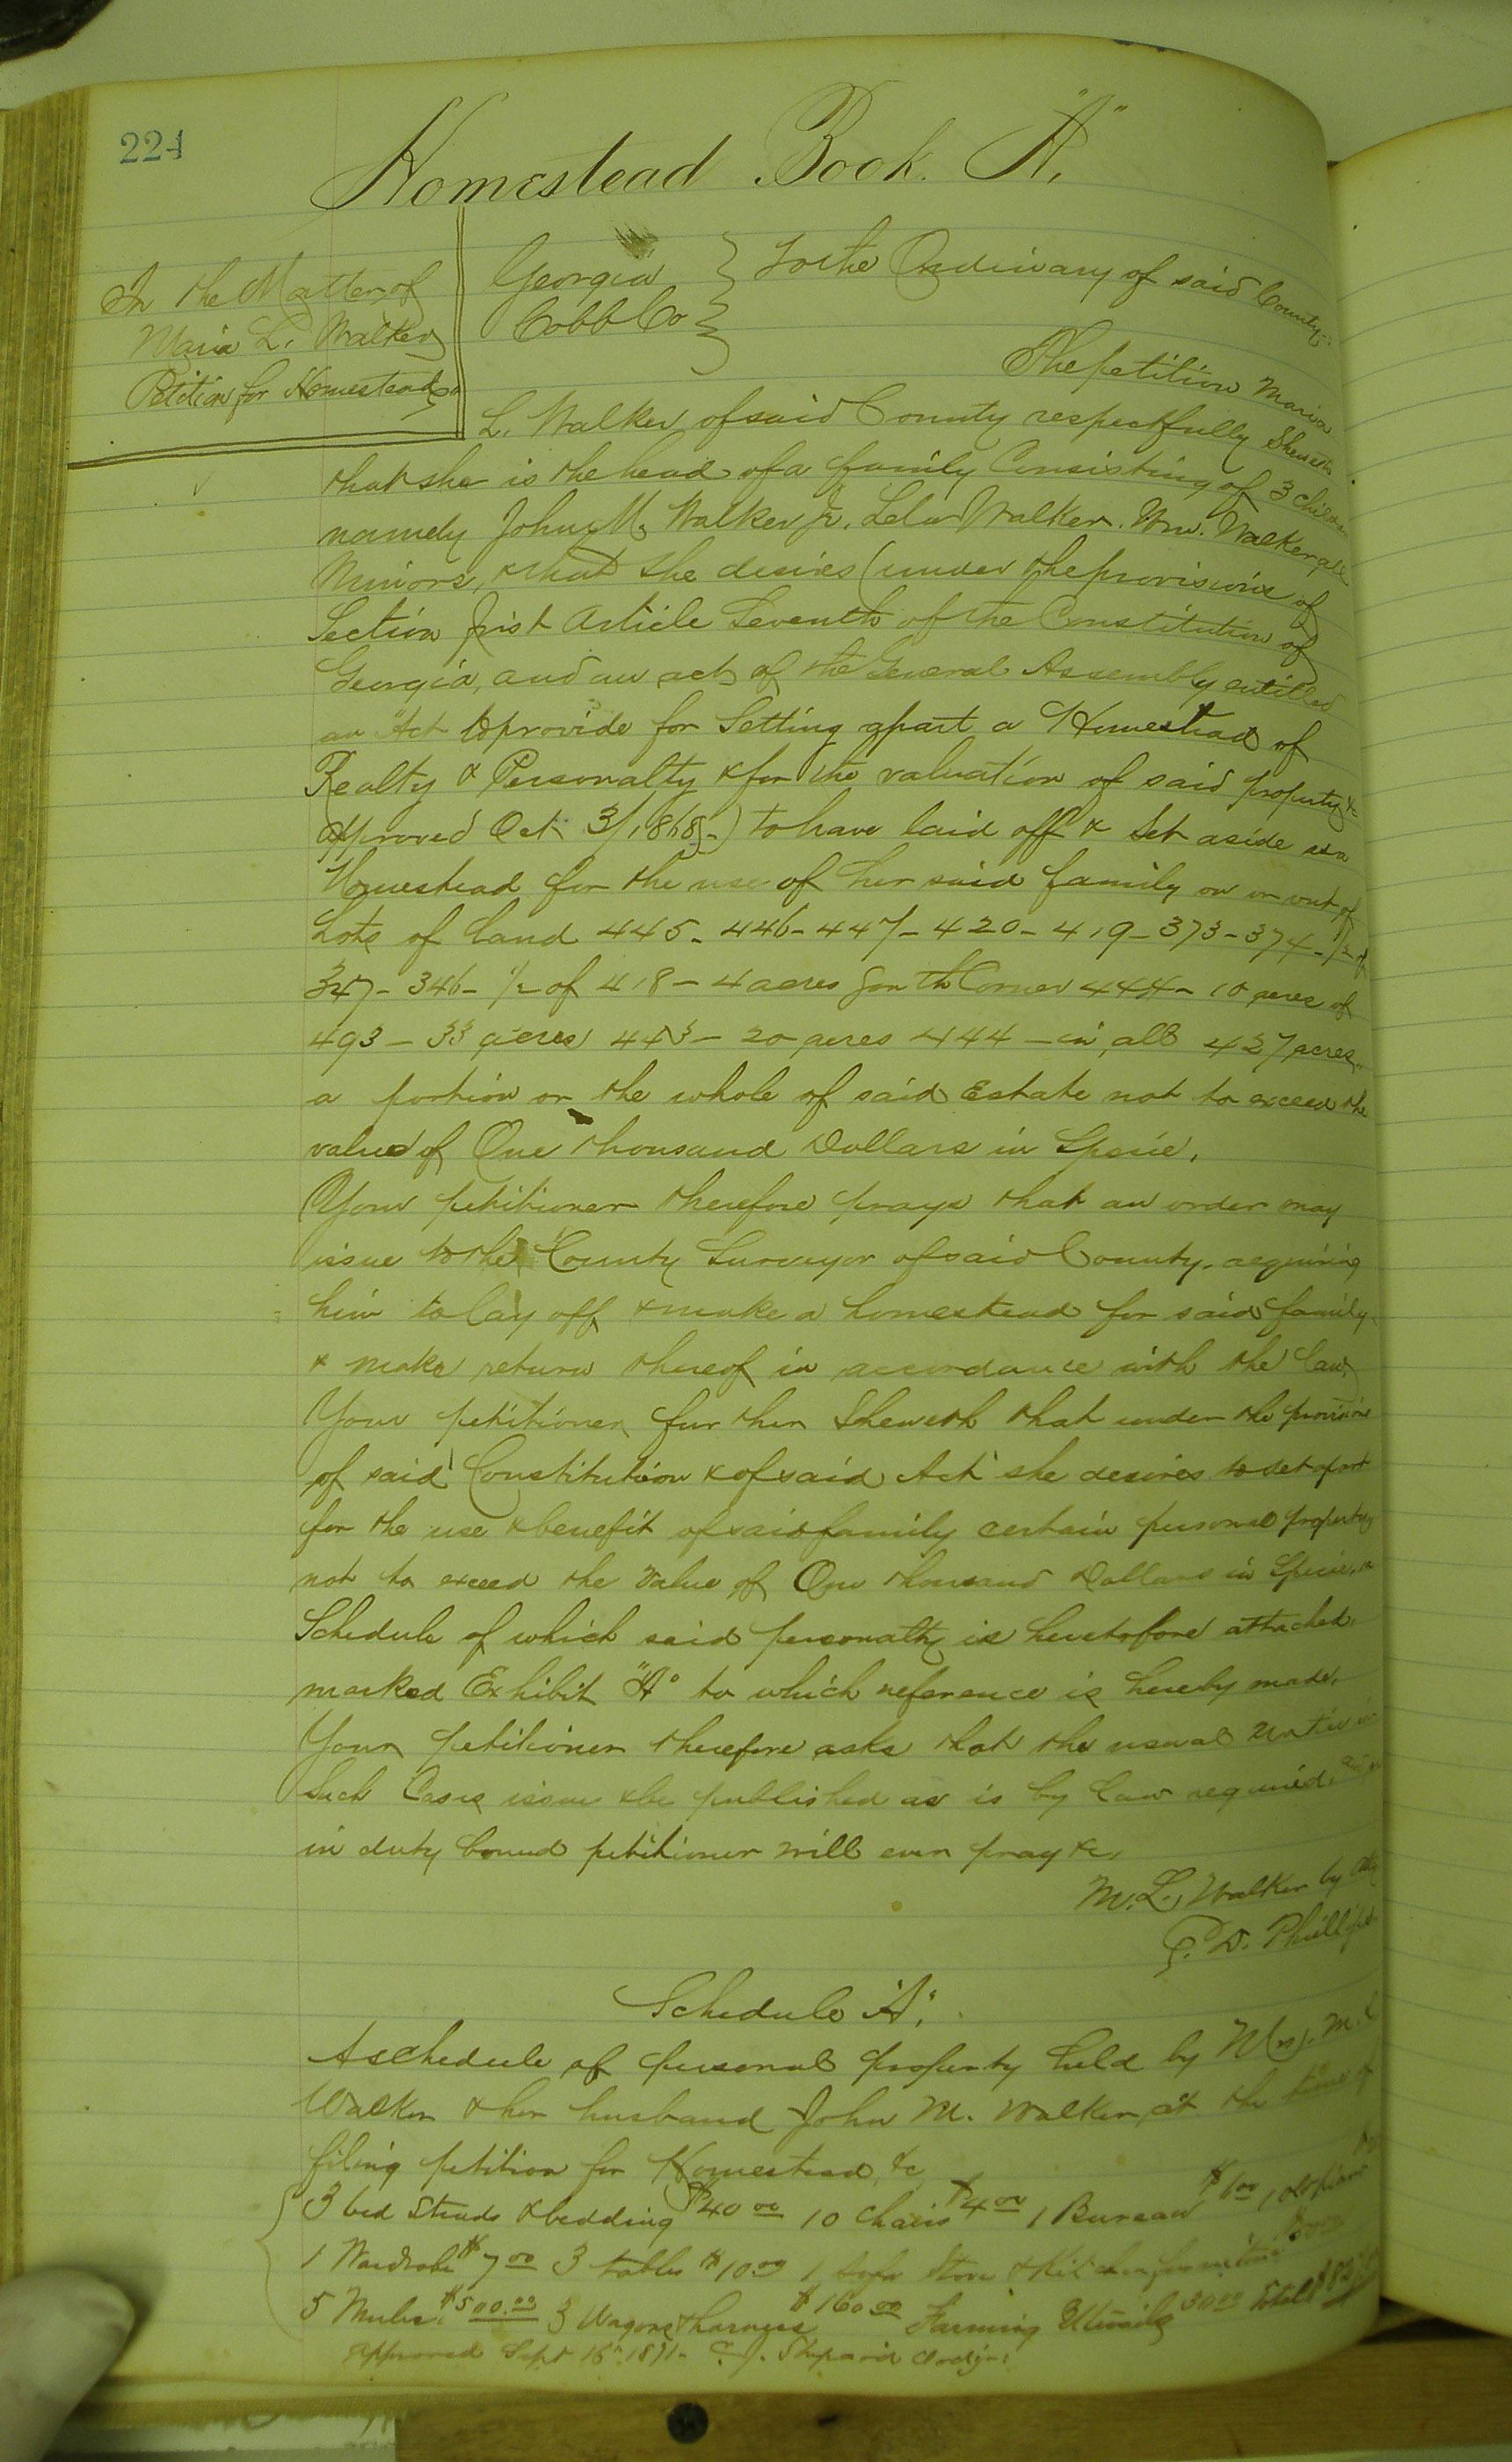 224
Homestead Book. "A",
In the Matter of
Maria L. Walker
Petition for Homestead
Georgia
Cobb Co
To the Ordinary of said County
The petition Maria
L. Walker of said County respectfully Sheweth
that she is the head of a family Consisting of 3 children
namely John M, Walker Jr. Lelar Walker. Wm. Walker, all
Minors, & that she desires (under the provisions of
Section first Article Seventh of the Constitution of
Georgia, and an act of the General Assembly entitled
an "Act to provide for Setting apart a Homestead of
Realty & Personalty & for the valuation of said property &c
approved Oct 3/, 1868,) to have laid off & Set aside as a
Homestead for the use of her said family on or out of
Lots of land 445- 446- 447- 420- 419- 373- 374- 1/2 of
347- 346- 1/2 of 418- 4 acres Corner 444- 10 acres of
493- 33 acres 443- 20 acres 444- in all 427 acres.
a portion or the whole of said Estate not to exceed the
value of One thousand Dollars in Specie,
Your petitioner therefore prays that an order may
issue to the County Surveyor of said County, requiring
him to lay off & make a homestead for said family
& make return thereof in accordance with the law,
Your petitioner further Sheweth that under the provisions
of said Constitution & of said Act she desires to set apart
for the use & benefit of said family certain personal property
not to exceed the value of One thousand Dollars in Specie, a
Schedule of which said personalty is heretofore attached.
marked Exhibit "A" to which reference is hereby made,
Your petitioner therefore asks that the usual
Such Cases issue & be published as is by law required,
in duty bound petitioner will ever pray &c,
M. L. Walker by Atty
P. D. Phillips
Schedule "A",
A schedule of personal property held by Mrs. M. L
Walker & her husband John M. Walker, at the time of
filing petition for Homestead, &c
3 bed Steads & bedding $40 00 10 Chairs $4 00 1 Bureau $6 00 1
1 Wardrobe $7 00 3 tables $10 00 1 Stove & Kitchen furniture
5 Mules $500.00 3 Wagons & harness $160 00 Farming Utensils 30 00 Total
Approved Sept 16th 1871- C. J. Shepard